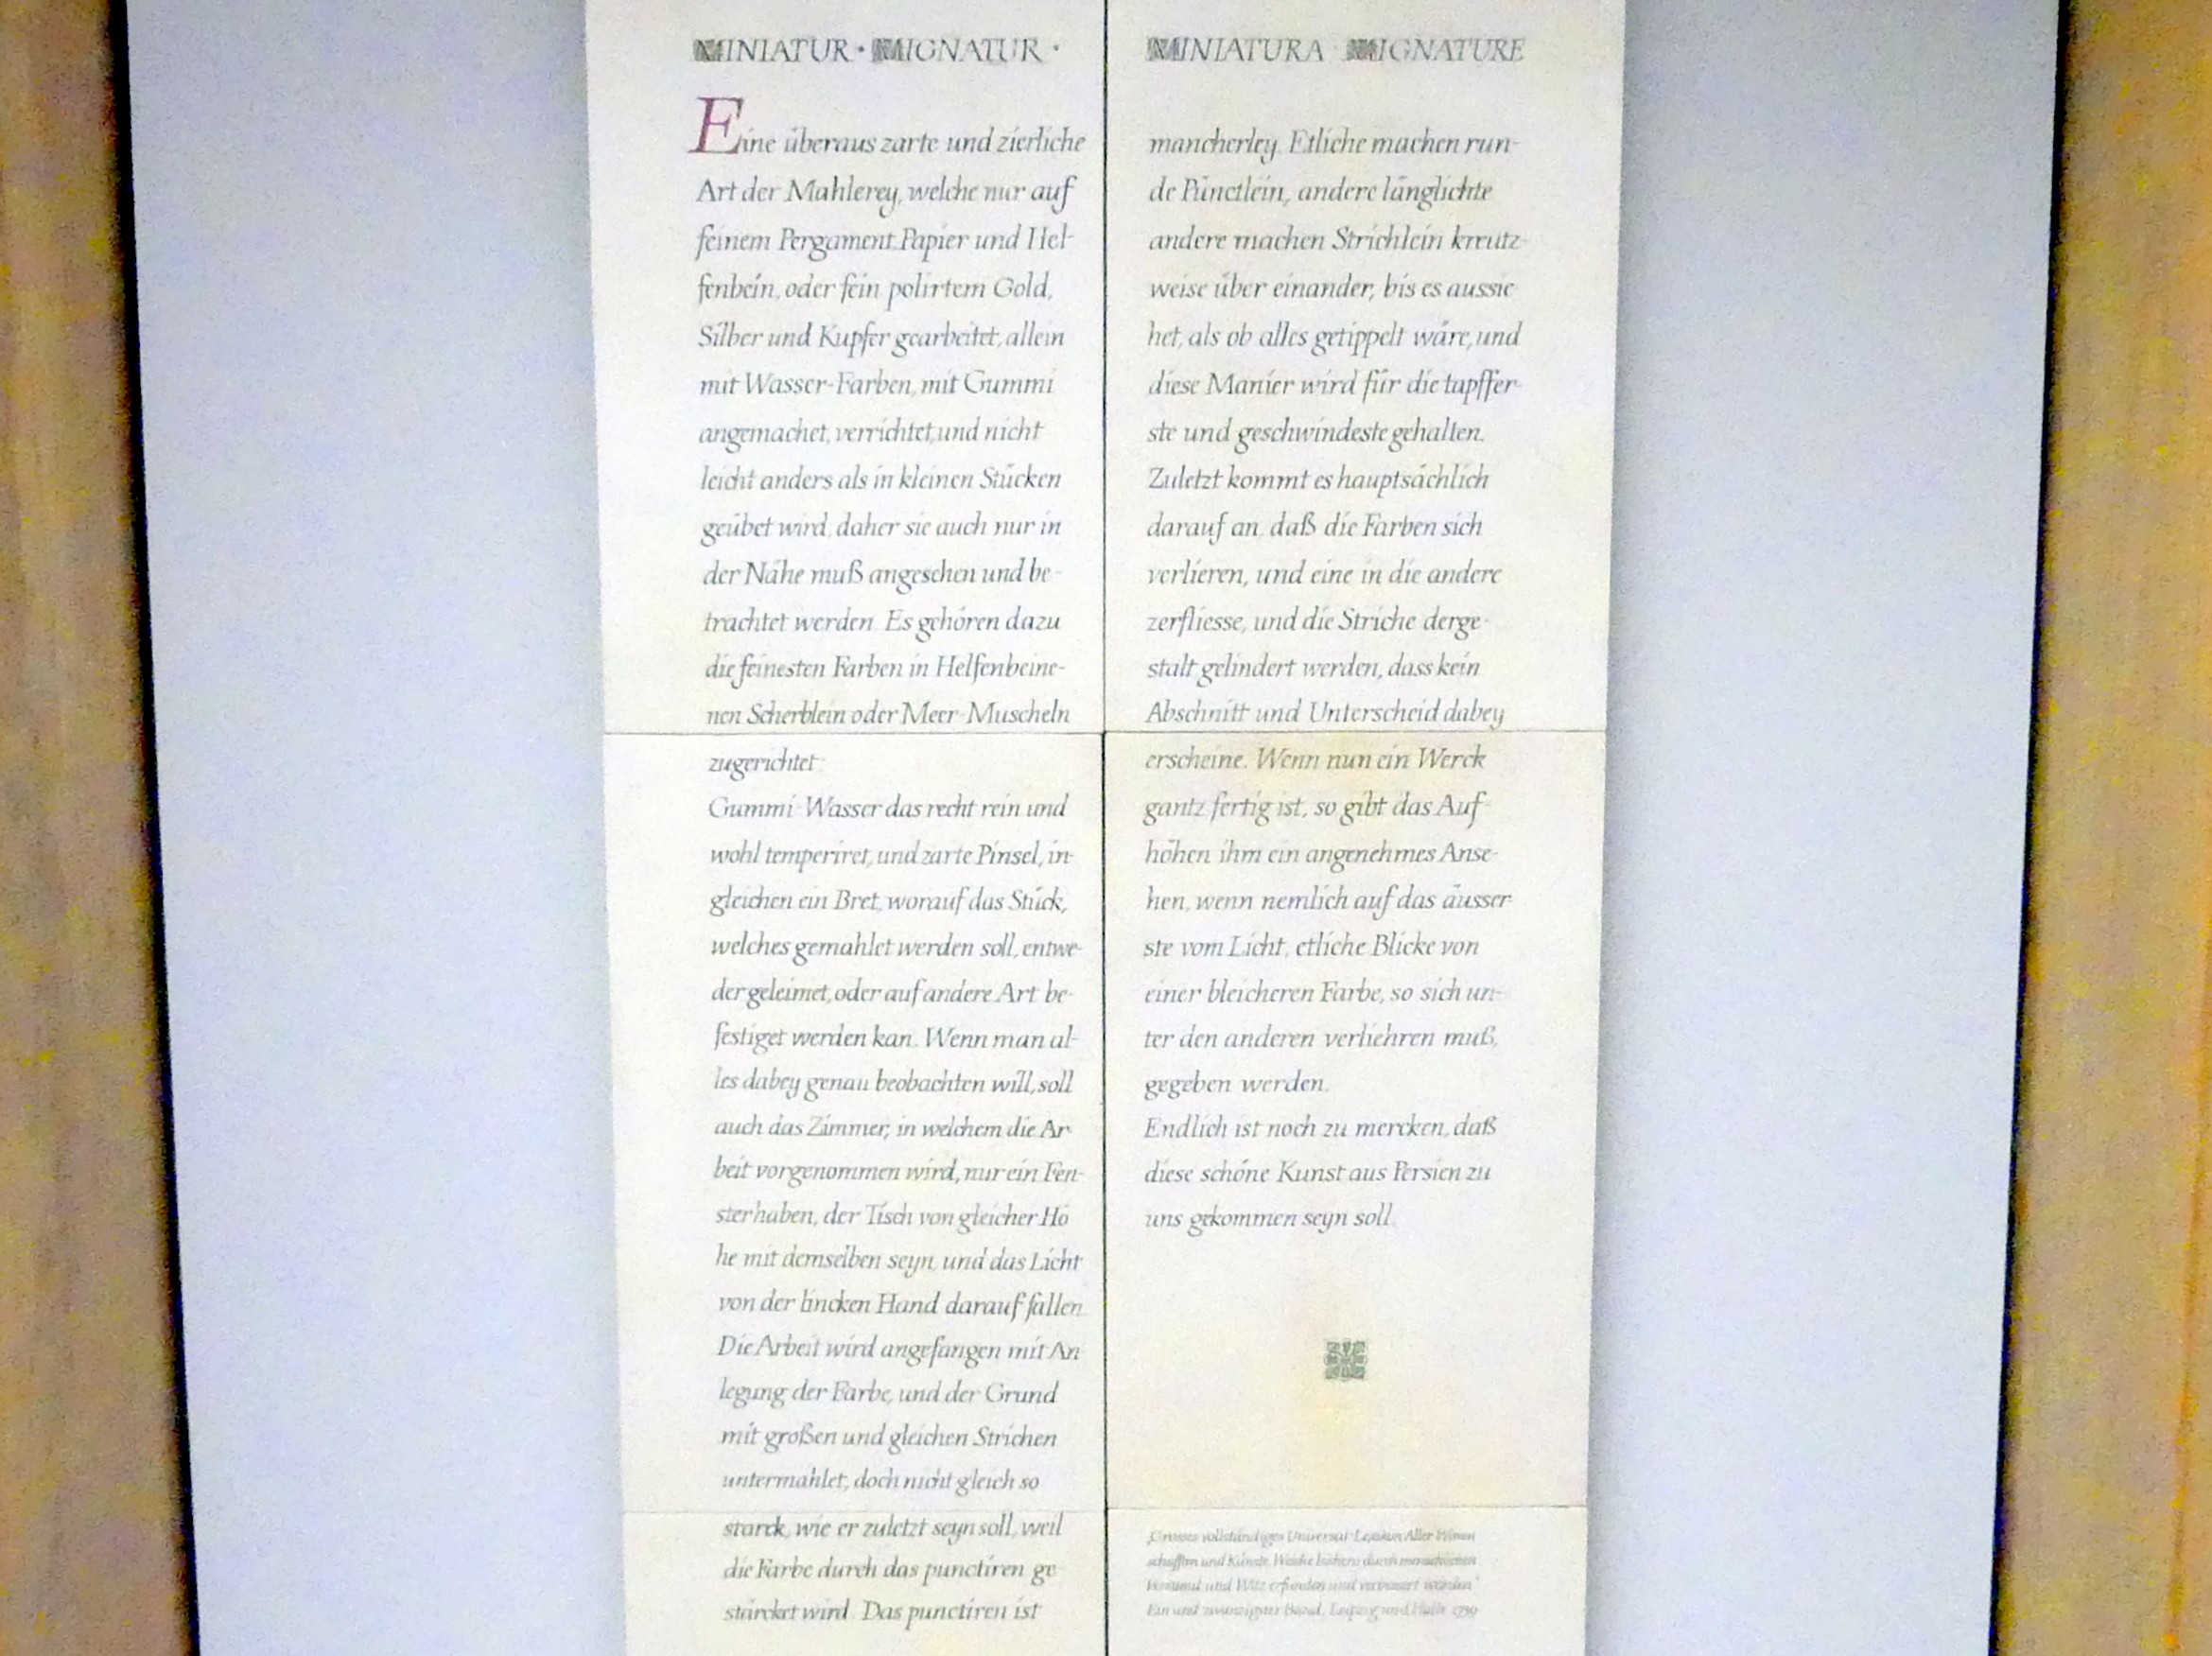 MINIATUR · MIGNATUR ·
Eine überaus zarte und zierliche
Art der Mahlerey, welche nur auf
feinem Pergament Papier und Hel-
fenbein, oder fein polirtem Gold,
Silber und Kupfer gearbeitet, allein
mit Wasser-Farben, mit Gummi
angemachet, verrichtet, und nicht
leicht anders als in kleinen Stücken
geübet wird, daher sie auch nur in
der Nähe muß angesehen und be-
trachtet werden. Es gehören dazu
die feinesten Farben in Helfenbeine-
nen Scherblein oder Meer-Muscheln
zugerichtet.
Gummi-Wasser das recht rein und
wohl temperiret, und zarte Pinsel, in-
gleichen ein Bret, worauf das Stück,
welches gemahlet werden soll, entwe-
der geleimet, oder auf andere Art be-
festiget werden kan. Wenn man al-
les dabey genau beobachten will, soll
auch das Zimmer, in welchem die Ar-
beit vorgenommen wird, nur ein Fen-
ster haben, der Tisch von gleicher Hö
he mit demselben seyn, und das Licht
von der lincken Hand darauf fallen.
Die Arbeit wird angefangen mit An-
legung der Farbe, und der Grund
mit großen und gleichen Strichen
untermahlet, doch nicht gleich so
starck, wie er zuletzt seyn soll, weil
die Farbe durch das punctiren ge-
stärcket wird. Das punctiren ist
MINIATURA · MIGNATURE
mancherley. Etliche machen run-
de Pünctlein, andere länglichte
andere machen Strichlein kreutz-
weise über einander, bis es aussie-
het, als ob alles getippelt wäre, und
diese Manier wird für die tapffer-
ste und geschwindeste gehalten.
Zuletzt kommt es hauptsächlich
darauf an, daß die Farben sich
verlieren, und eine in die andere
zerfliesse, und die Striche derge-
stalt gelindert werden, dass kein
Abschnitt und Unterscheid dabey
erscheine. Wenn nun ein Werck
gantz fertig ist, so gibt das Auf-
höhen ihm ein angenehmes Anse-
hen, wenn nemlich auf das äusser-
ste vom Licht, etliche Blicke von
einer bleicheren Farbe, so sich un-
ter den anderen verliehren muß,
gegeben werden.
Endlich ist noch zu mercken, daß
diese schöne Kunst aus Persien zu
uns gekommen seyn soll.
„Grosses vollständiges Universal-Lexikon Aller Wissen
schafften und Künste, Welche bishero durch menschlichen
Verstand und Witz erfunden und verbessert worden"
Ein und zwanzigster Band, Leipzig und Halle 1739